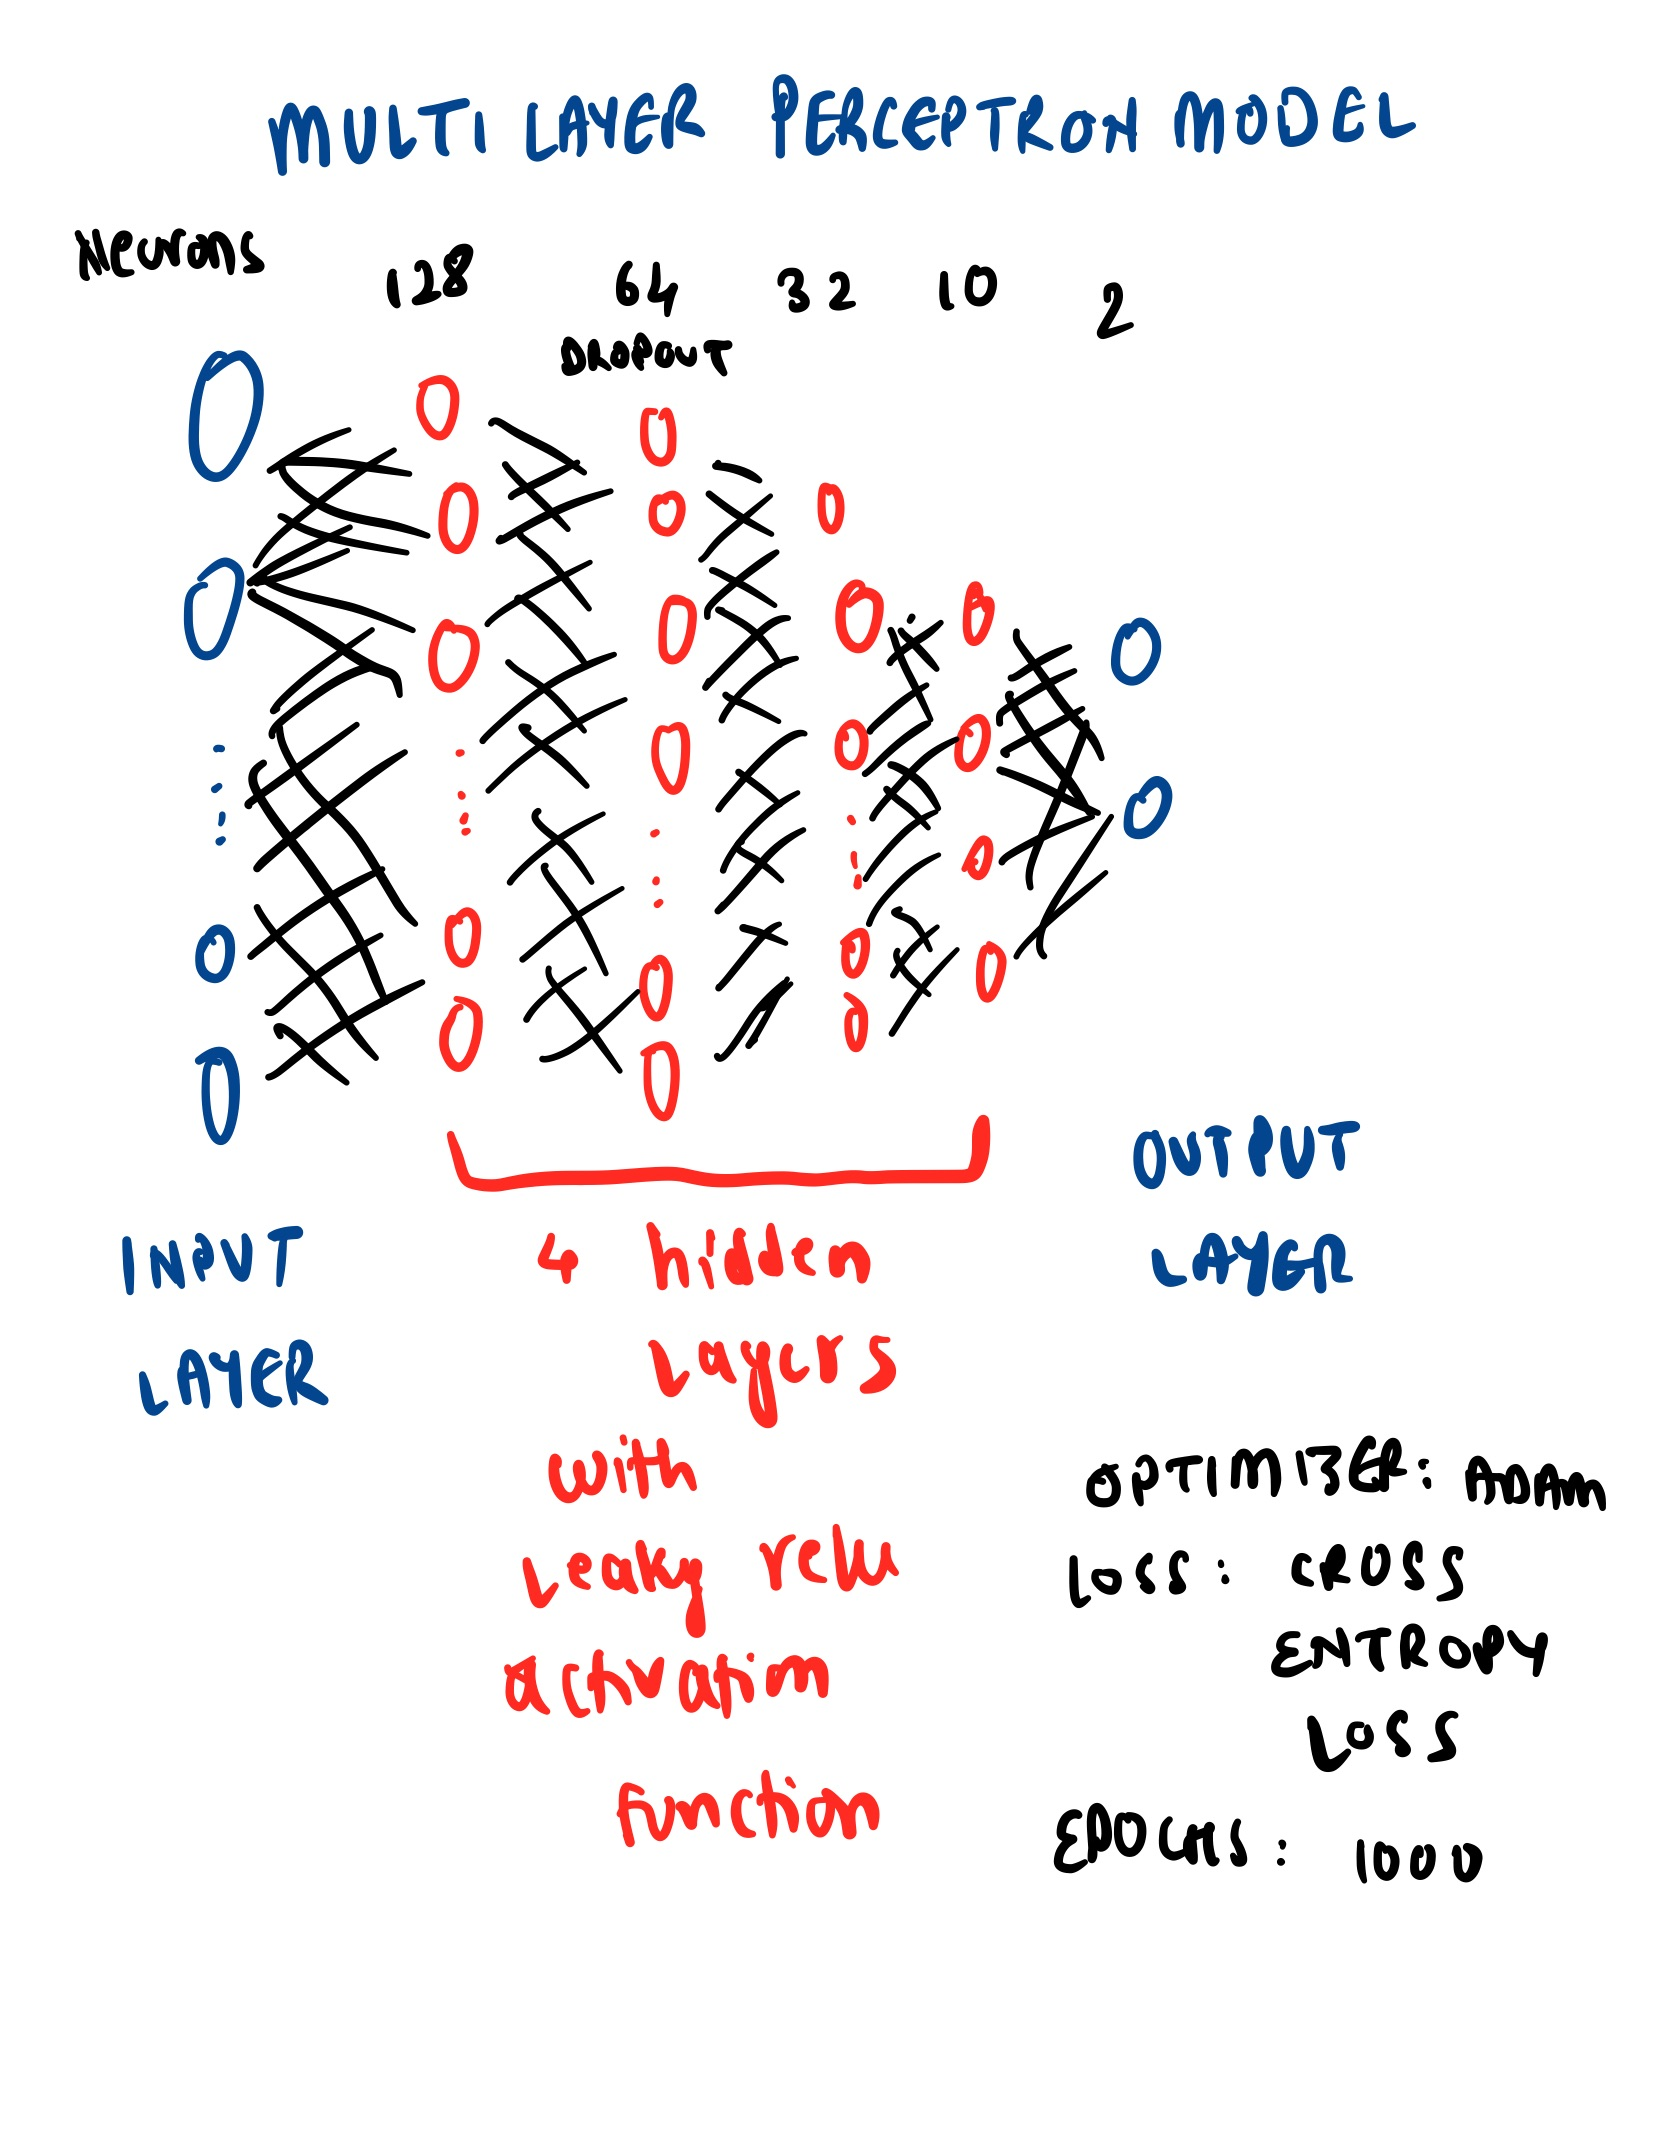 MULTI LAYER PERCEPTRON MODEL
Neurons 128 64 32 10 2
DROPOUT
INPUT
LAYER
4 hidden
Layers
with
Leaky relu
activation
function
OUTPUT
LAYER
OPTIMIZER: ADAM
LOSS: CROSS
ENTROPY
LOSS
EPOCHS: 1000